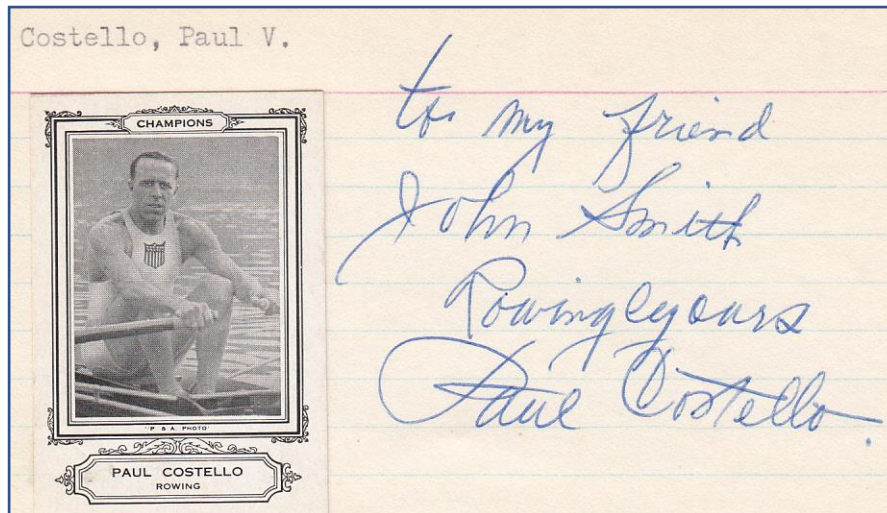 Costello, Paul V.
CHAMPIONS
"P & A PHOTO"
PAUL COSTELLO
ROWING
to my friend
John Smith
Rowingly yours
Paul Costello.